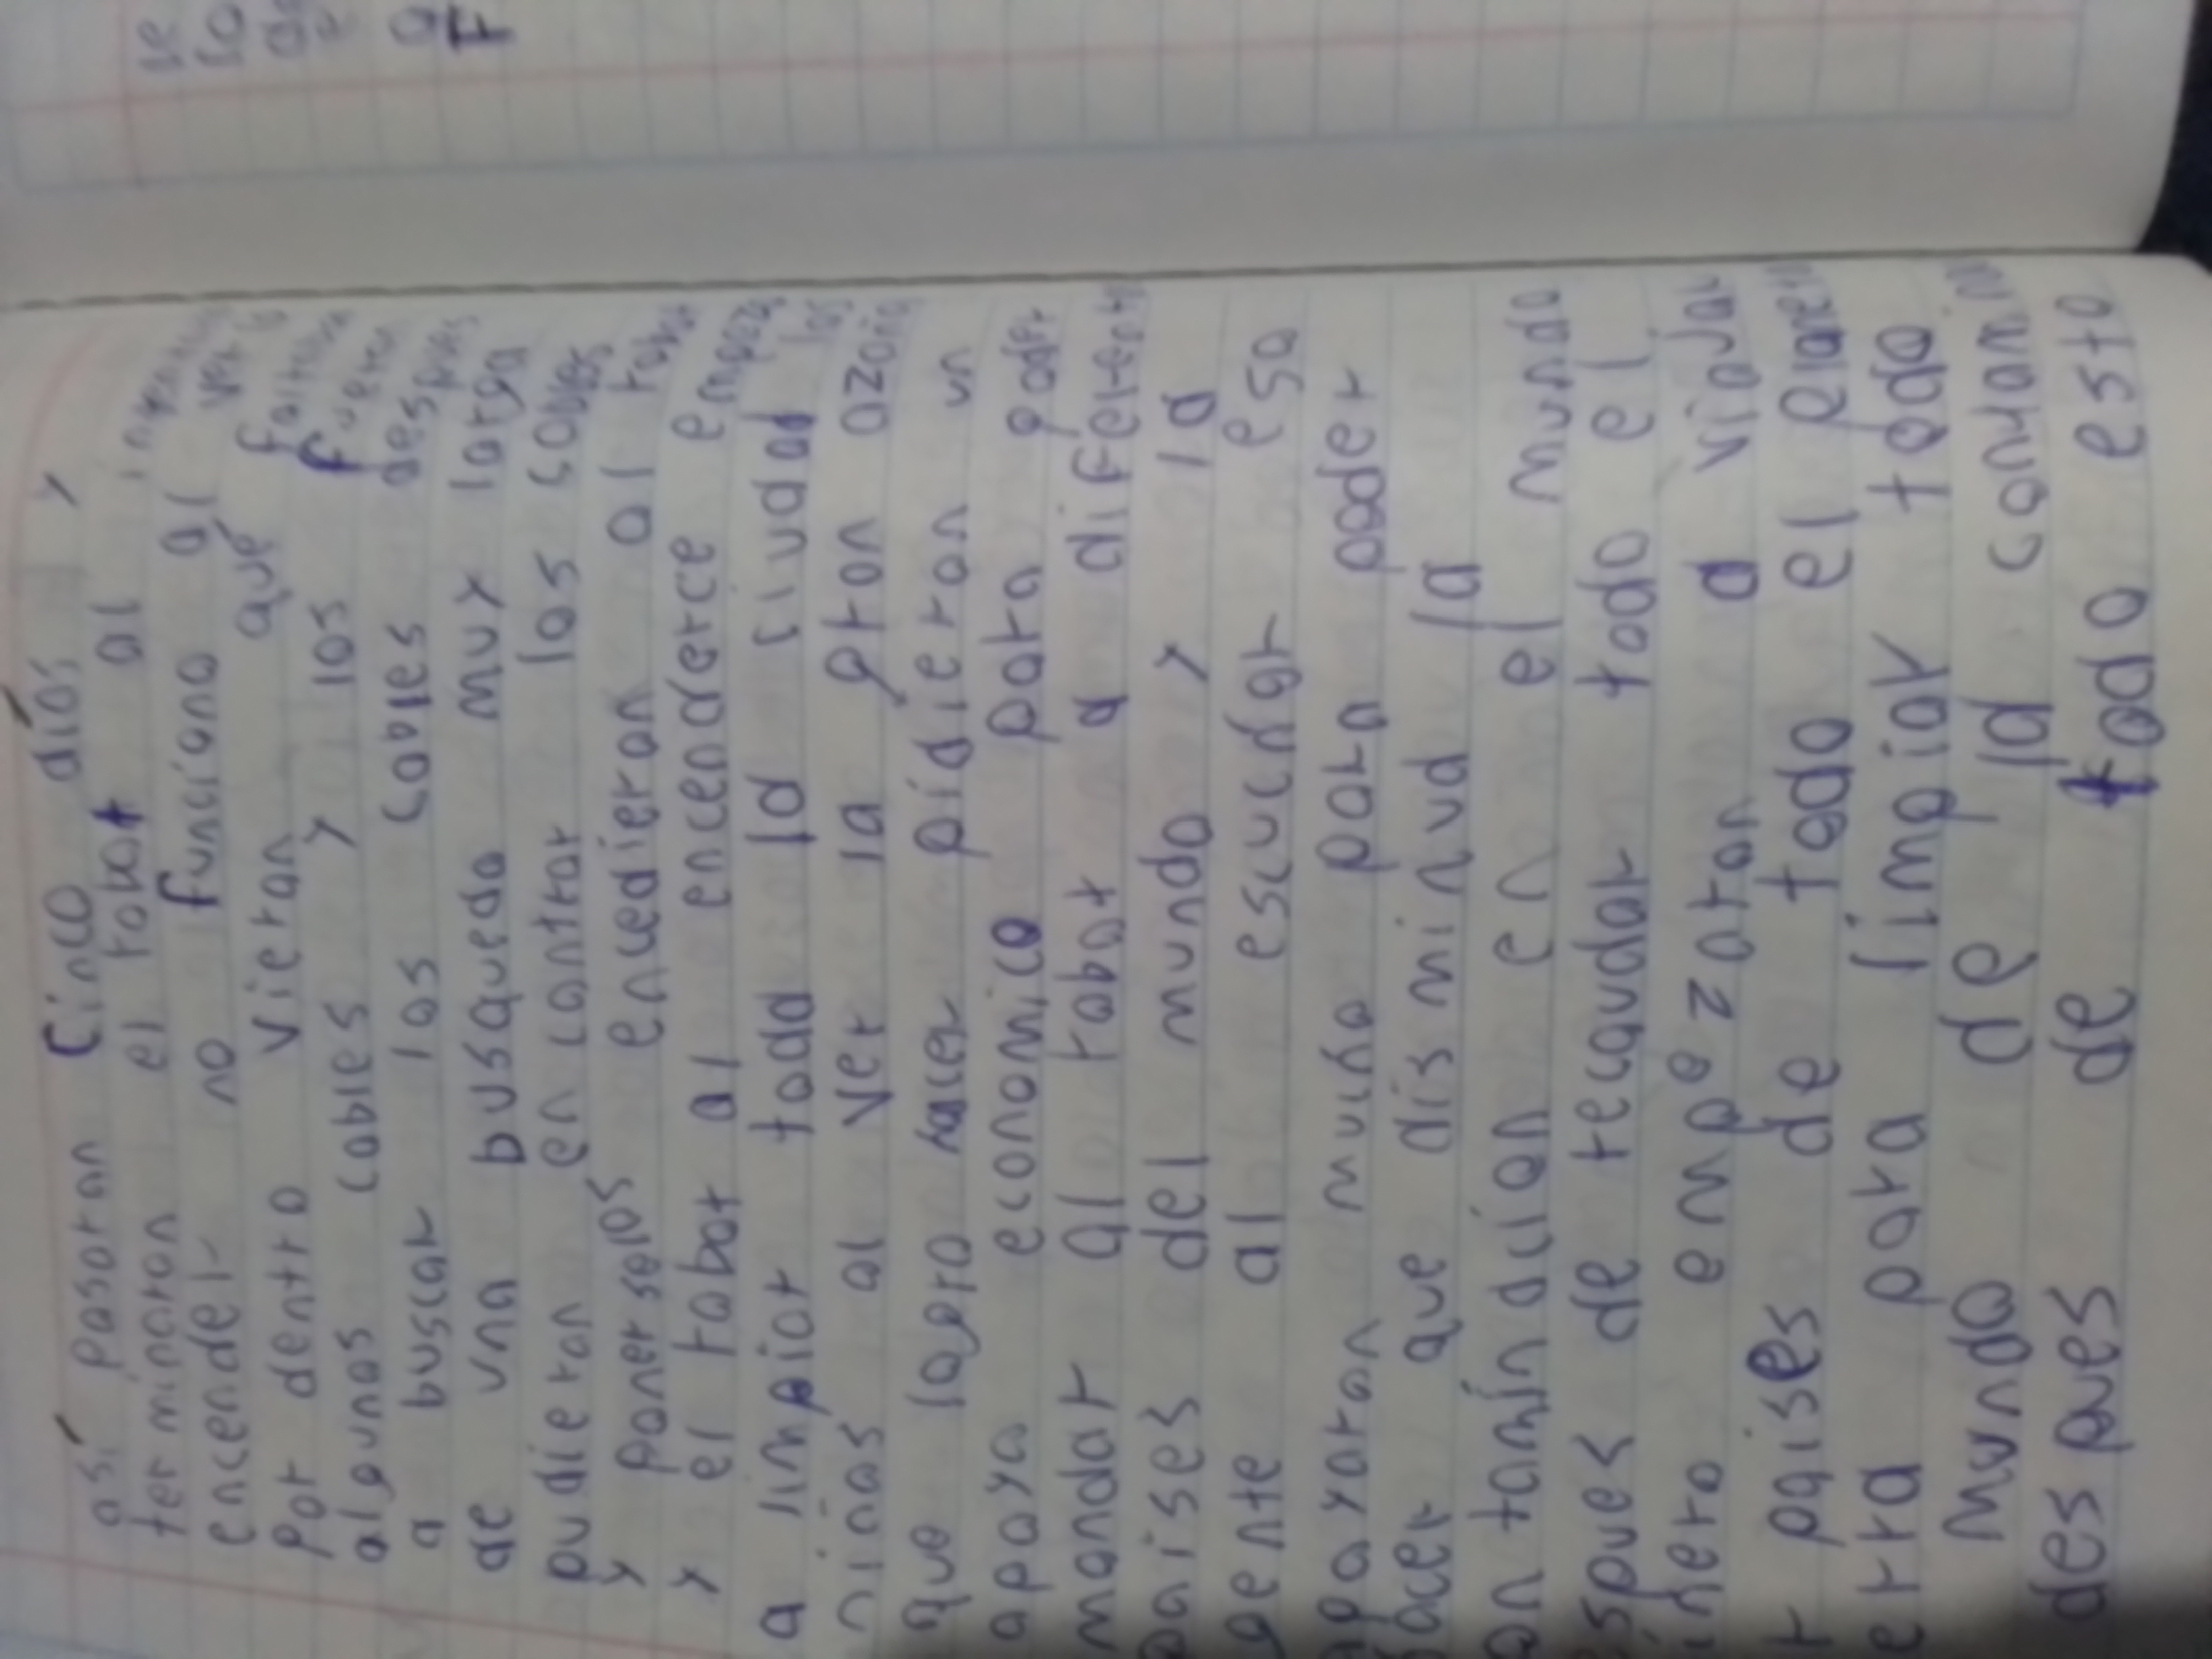 así pasaron cinco días y
terminaron el robot al intentar
encender no funciono al ver
por dentro vieron que faltaban
algunos cables y los fueron
a buscar los cables despues
de una busqueda muy larga
pudieron en contrar los cables
y ponerselos encedieron al robot
y el robot al encenderce empezo
a limpiar toda la ciudad los
niños al ver la gran azaña
que logro hacer pidieron un
apoyo economico para poder
mandar al robot a diferente
paises del mundo y la
gente al escuchar esa
apoyaron mucho para poder
hacer que disminud la
on tamindcion en el mundo
espues de recaudar todo el
inero empezaron a viajar
r paises de todo el
erra para limpiar todo
mundo de la
des pues de todo esto